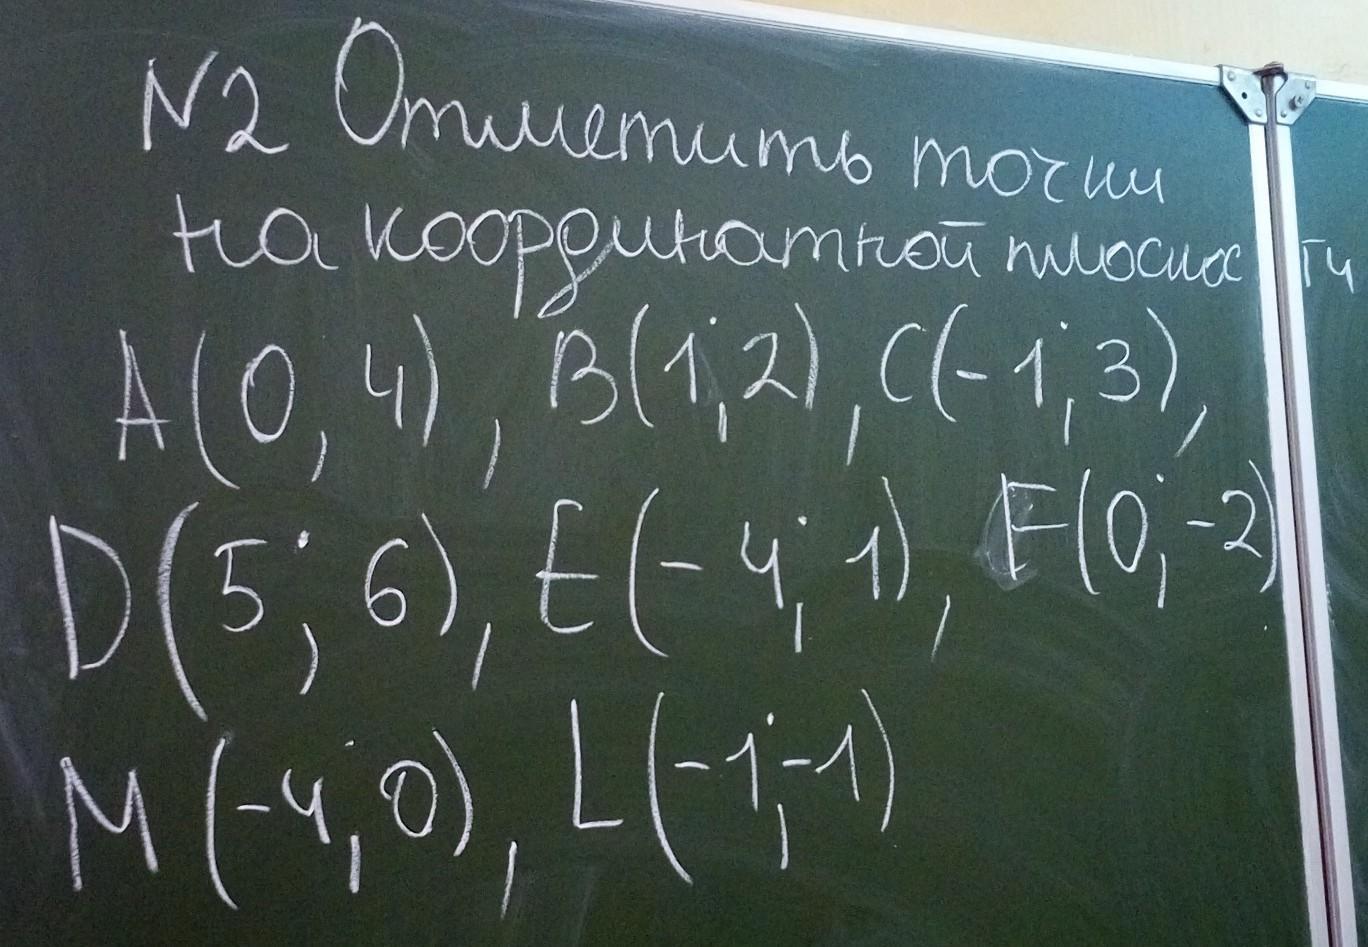 N2 Отметить точки
на координатной плоскости
A(0, 4), B(1; 2), C(-1; 3),
D(5; 6), E(-4; 1), F(0; -2)
M(-4; 0), L(-1; -1)